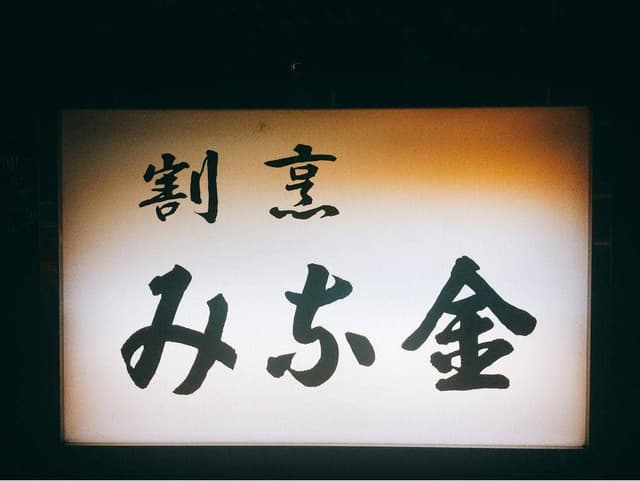 割烹
みな金